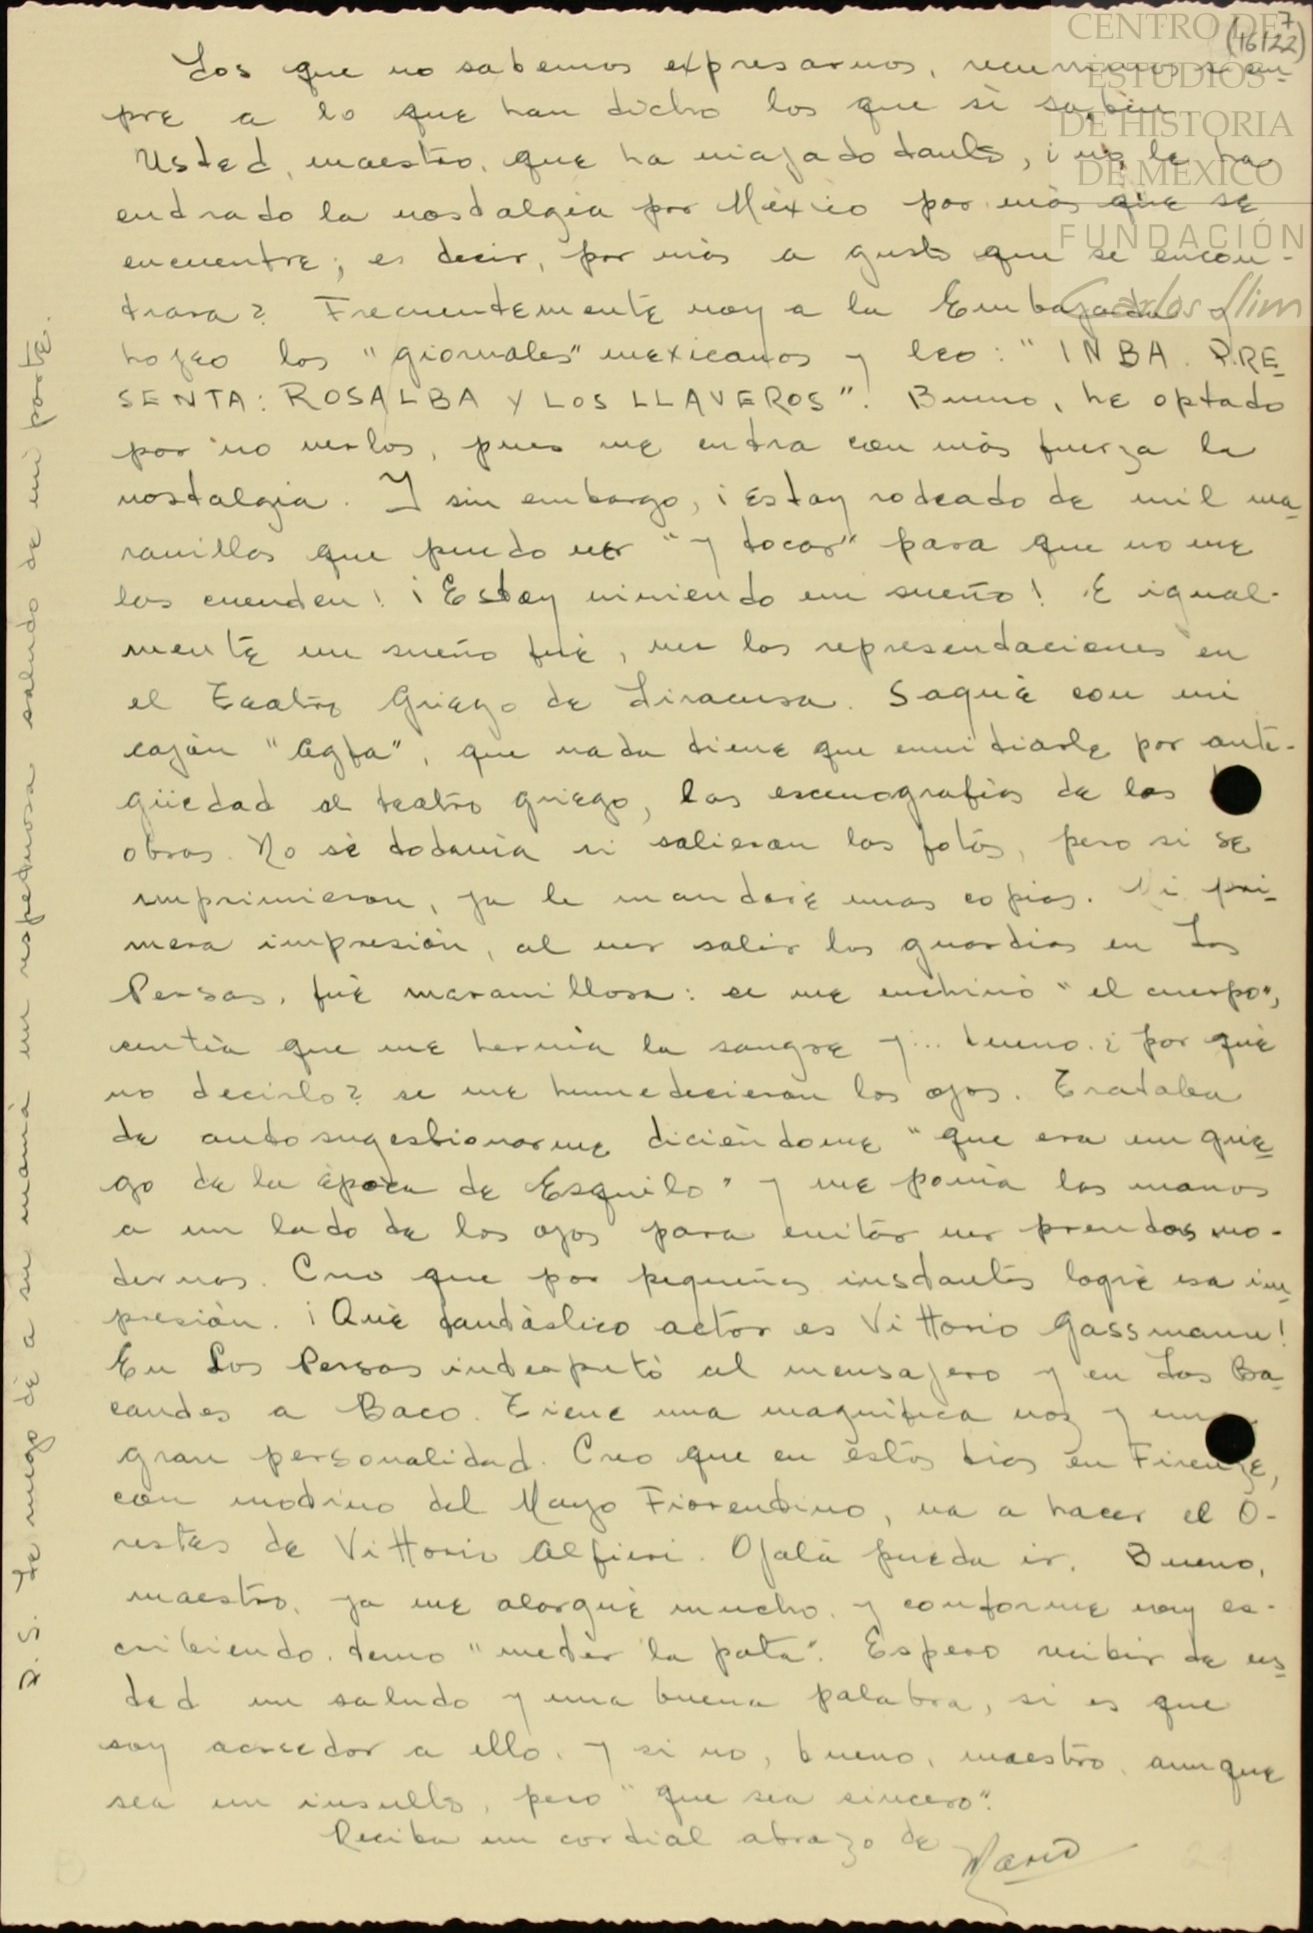 7
(16/22)
CENTRO DE
ESTUDIOS
DE HISTORIA
DE MÉXICO
FUNDACIÓN
Carlos Slim
Los que no sabemos expresarnos, recurrimos siem-
pre a lo que han dicho los que sí saben
Usted, maestro, que ha viajado tanto, ¿no le ha
entrado la nostalgia por México por más que se
encuentre; es decir, por más a gusto que se encon-
trara? Frecuentemente voy a la Embajada y
hojeo los "giornales" mexicanos y leo: "INBA. PRE-
SENTA: ROSALBA Y LOS LLAVEROS". Bueno, he optado
por no verlos, pues me entra con más fuerza la
nostalgia. Y sin embargo, ¡Estoy rodeado de mil ma-
ravillas que puedo ver "y tocar" para que no me
las cuenten! ¡Estoy viviendo un sueño! E igual-
mente un sueño fué, ver las representaciones en
el Teatro Griego de Siracusa. Saqué con mi
cajón "Agfa", que nada tiene que envidiarle por anti-
güedad al teatro griego, las escenografías de las
obras. No sé todavía si salieron las fotos, pero si se
imprimieron, ya le mandaré unas copias. Mi pri-
mera impresión, al ver salir los guardias en Los
Persas, fué maravillosa: se me enchinó "el cuerpo",
sentía que me hervía la sangre y... bueno. ¿por qué
no decirlo? se me humedecieron los ojos. Trataba
de autosugestionarme diciéndome "que era un grie-
go de la época de Esquilo" y me ponía las manos
a un lado de los ojos para evitar ver prendas mo-
dernas. Creo que por pequeños instantes logré esa im-
presión. ¡Qué fantástico actor es Vittorio Gassmann!
En Los Persas interpretó al mensajero y en Las Ba-
cantes a Baco. Tiene una magnífica voz y una
gran personalidad. Creo que en estos días en Firenze,
con motivo del Mayo Fiorentino, va a hacer el O-
restes de Vittorio Alfieri. Ojalá pueda ir. Bueno,
maestro, ya me alargué mucho, y conforme voy es-
cribiendo, temo "meter la pata". Espero recibir de us-
ted un saludo y una buena palabra, si es que
soy acreedor a ello. y si no, bueno, maestro, aunque
sea un insulto, pero "que sea sincero".
Reciba un cordial abrazo de
P.S. Le ruego dé a su mamá un respetuoso saludo de mi parte.